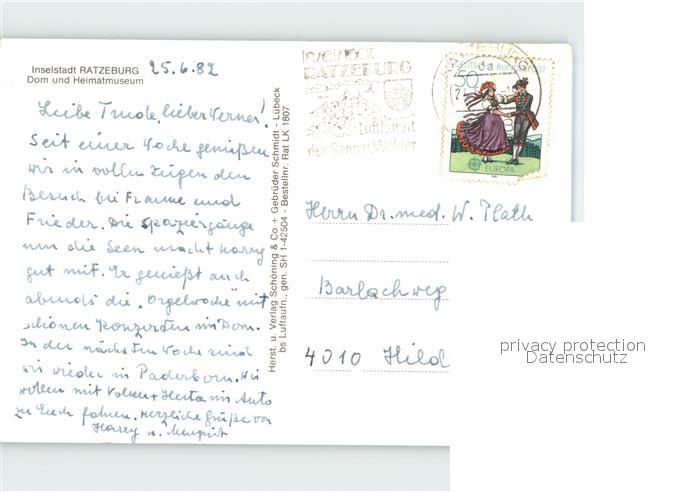 Inselstadt RATZEBURG 25.6.82
Dom und Heimatmuseum
Liebe Trude, lieber Werner!
Seit einer Woche genießen
wir in vollen Zügen den
Besuch bei Hanne und
Frieder. Die Spaziergänge
um die Seen macht Harry
gut mit. Er genießt auch
abends die „Orgelwoche" mit
schönen Konzerten im Dom.
In der nächsten Woche sind
wir wieder in Paderborn. Wir
wollen mit Volker + Herta im Auto
zu Euch fahren. Herzliche Grüße von
Harry u. Margret
Herst. u. Verlag Schöning & Co + Gebrüder Schmidt - Lübeck
bs Luftaufn., gen. SH 1-42504 - Bestellnr. Rat LK 1807
Inselstadt
RATZEBURG
Luftkurort
der Seen u. Wälder
DEUTSCHE BUNDESPOST
50
EUROPA
Herrn Dr. med. W. Plath
Barlachweg
4010 Hild
privacy protection
Datenschutz